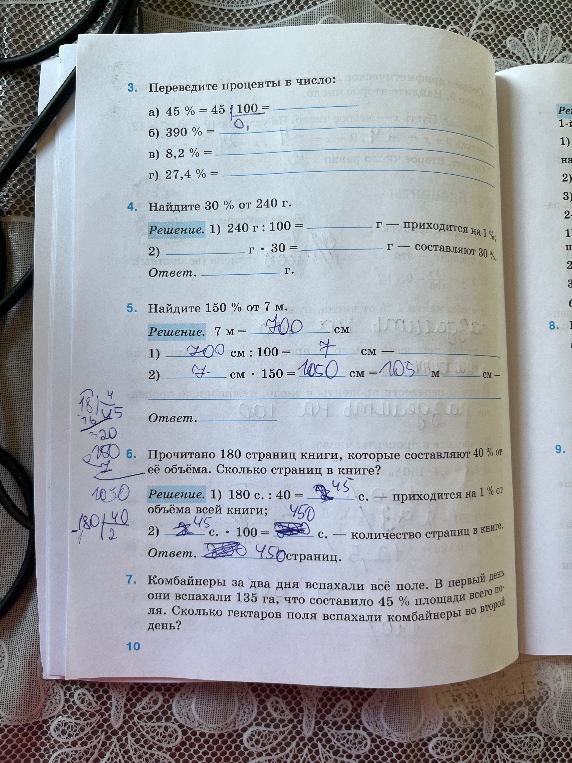 3. Переведите проценты в число:
а) 45 % = 45 : 100 =
0,
б) 390 % =
в) 8,2 % =
г) 27,4 % =
4. Найдите 30 % от 240 г.
Решение. 1) 240 г : 100 = г — приходится на 1 %;
2) г · 30 = г — составляют 30 %.
Ответ. г.
5. Найдите 150 % от 7 м.
Решение. 7 м = 700 см
1) 700 см : 100 = 7 см —
2) 7 см · 150 = 1050 см = 105 м см –
Ответ.
6. Прочитано 180 страниц книги, которые составляют 40 % от
её объёма. Сколько страниц в книге?
Решение. 1) 180 с. : 40 = 45 с. — приходится на 1 % от
объёма всей книги; 450
2) 45 с. · 100 = с. — количество страниц в книге.
Ответ. 450 страниц.
7. Комбайнеры за два дня вспахали всё поле. В первый день
они вспахали 135 га, что составило 45 % площади всего по-
ля. Сколько гектаров поля вспахали комбайнеры во второй
день?
10
1050
180 40
2
Ре
1-й
1)
на
2)
3)
2.
1)
2)
3
8.
9.